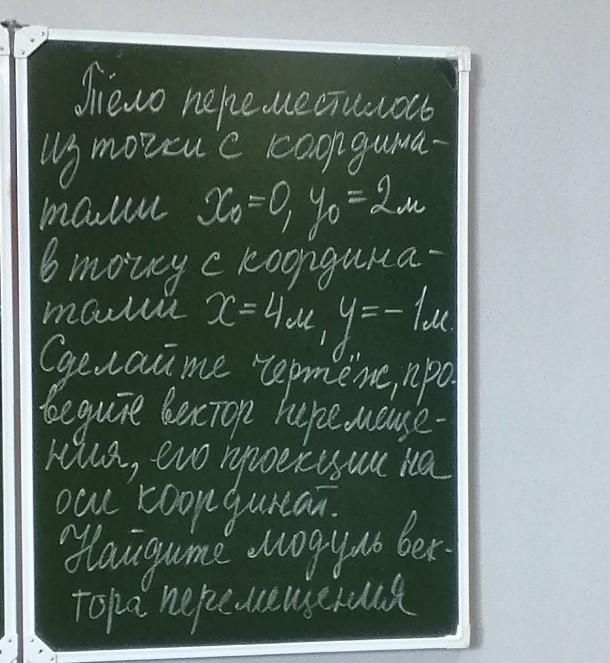 Тело переместилось
из точки с координа-
тами x₀=0, y₀=2м
в точку с координа-
тами x=4м, y=-1м.
Сделайте чертёж, про-
ведите вектор перемеще-
ния, его проекции на
оси координат.
Найдите модуль век-
тора перемещения